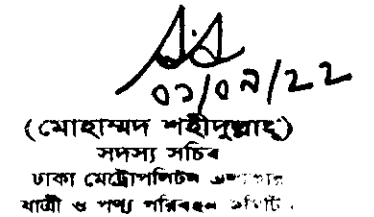 ০১/০৯/২২
(মোহাম্মদ শহীদুল্লাহ্)
সদস্য সচিব
ঢাকা মেট্রোপলিটন এলাকার
যাত্রী ও পণ্য পরিবহন কমিটি।